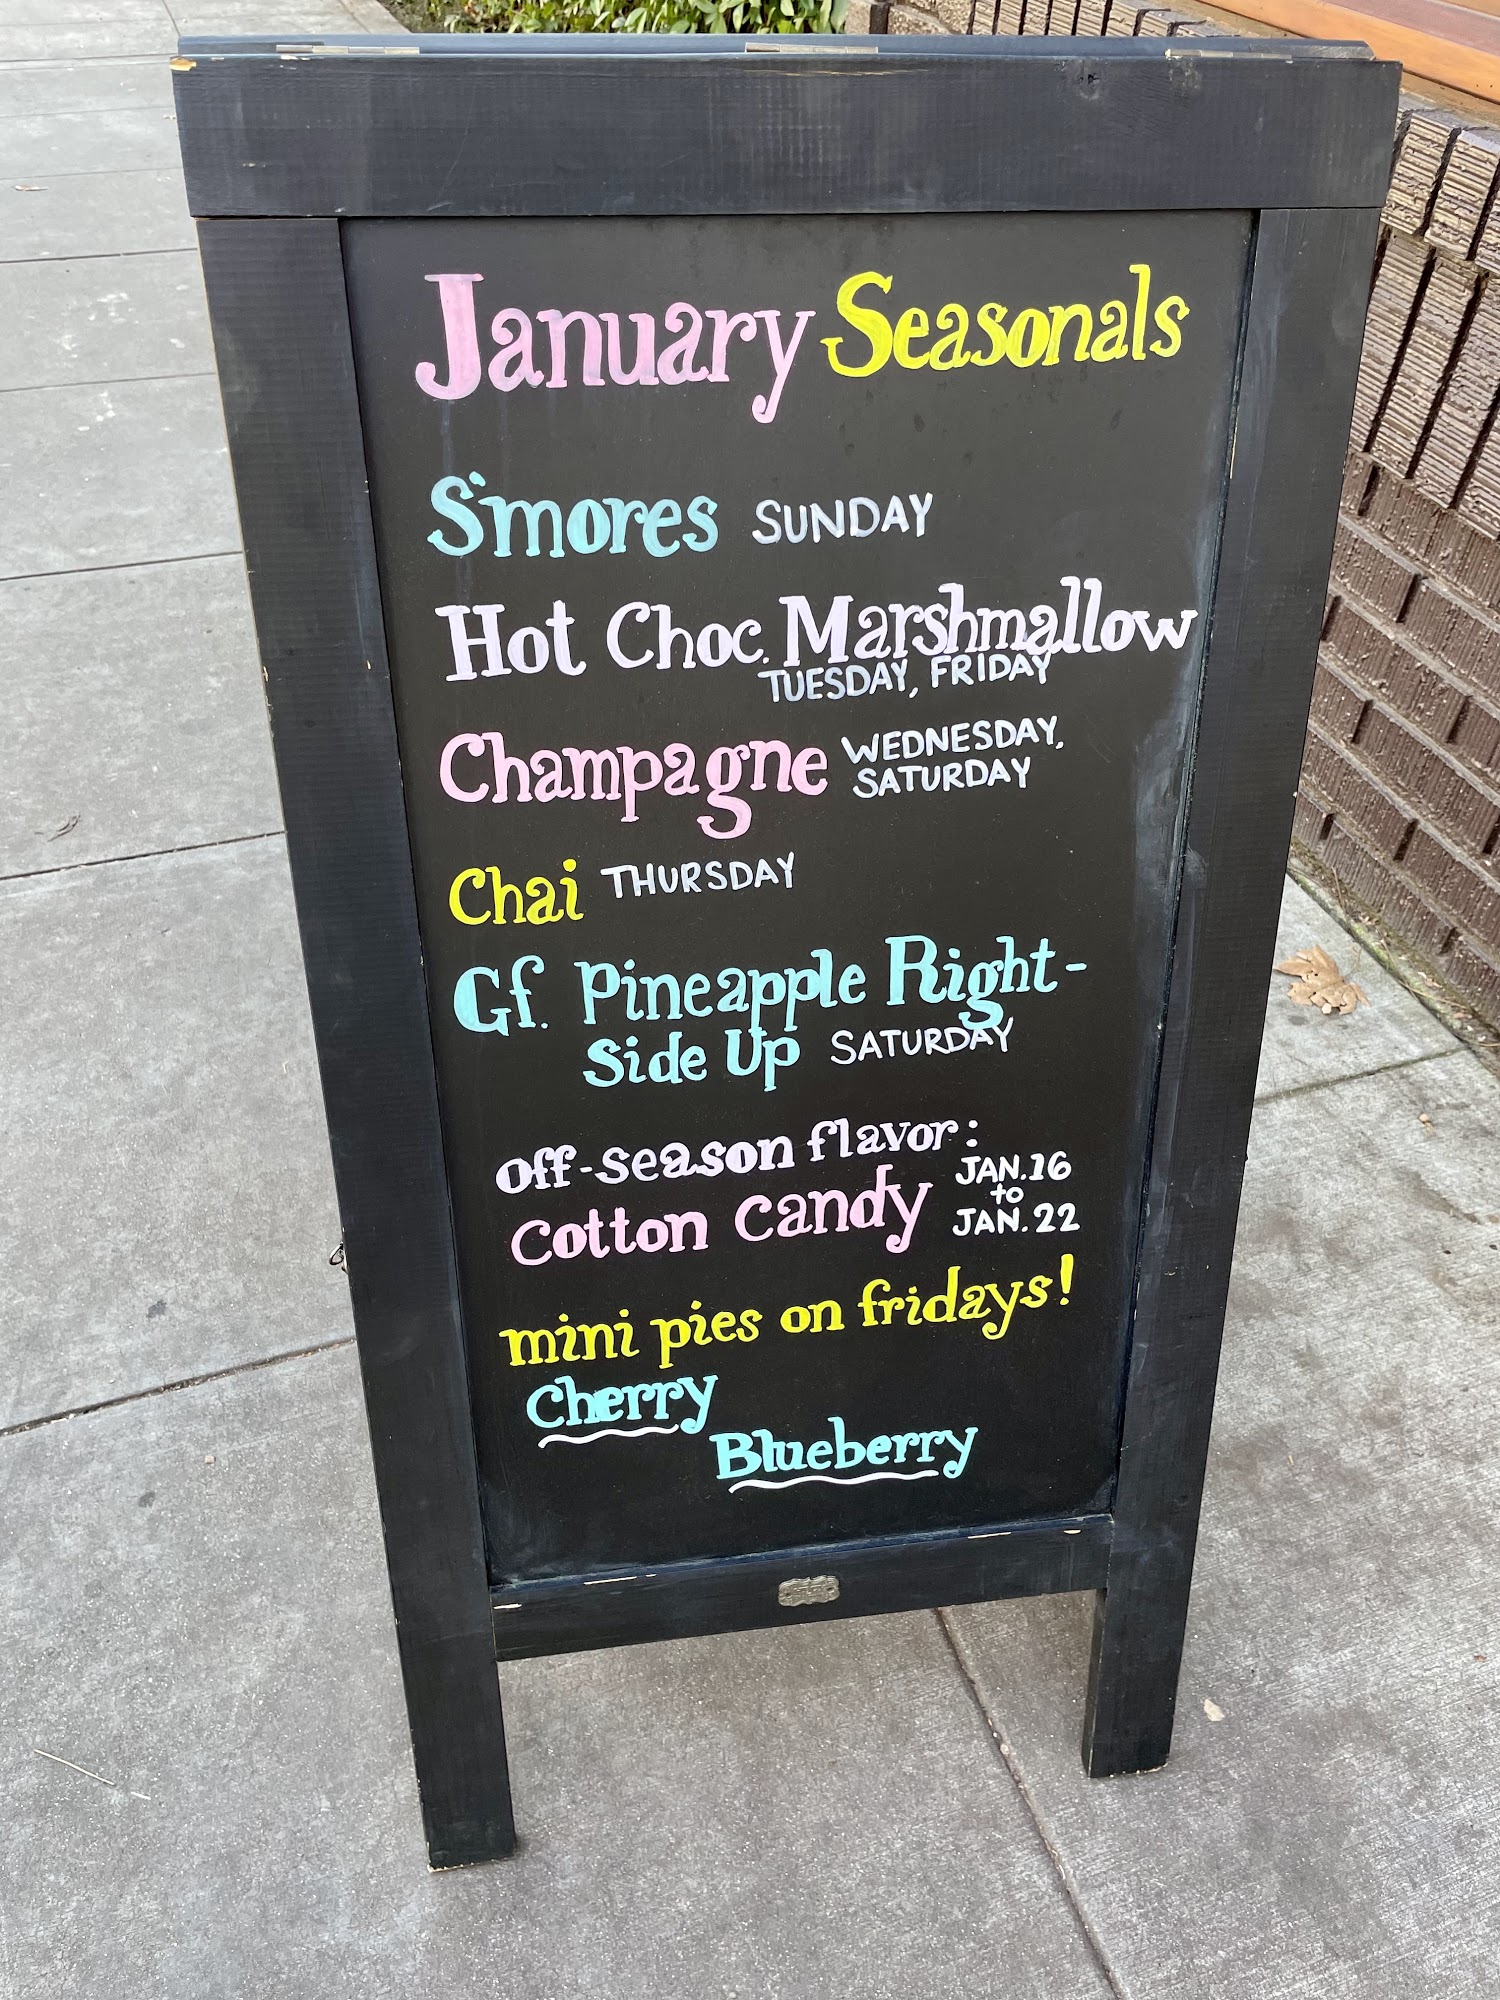 January Seasonals
S'mores SUNDAY
Hot Choc. Marshmallow
TUESDAY, FRIDAY
Champagne WEDNESDAY,
SATURDAY
Chai THURSDAY
Gf. Pineapple Right-
Side Up SATURDAY
off-season flavor:
Cotton Candy JAN. 16
to
JAN. 22
mini pies on fridays!
Cherry
Blueberry